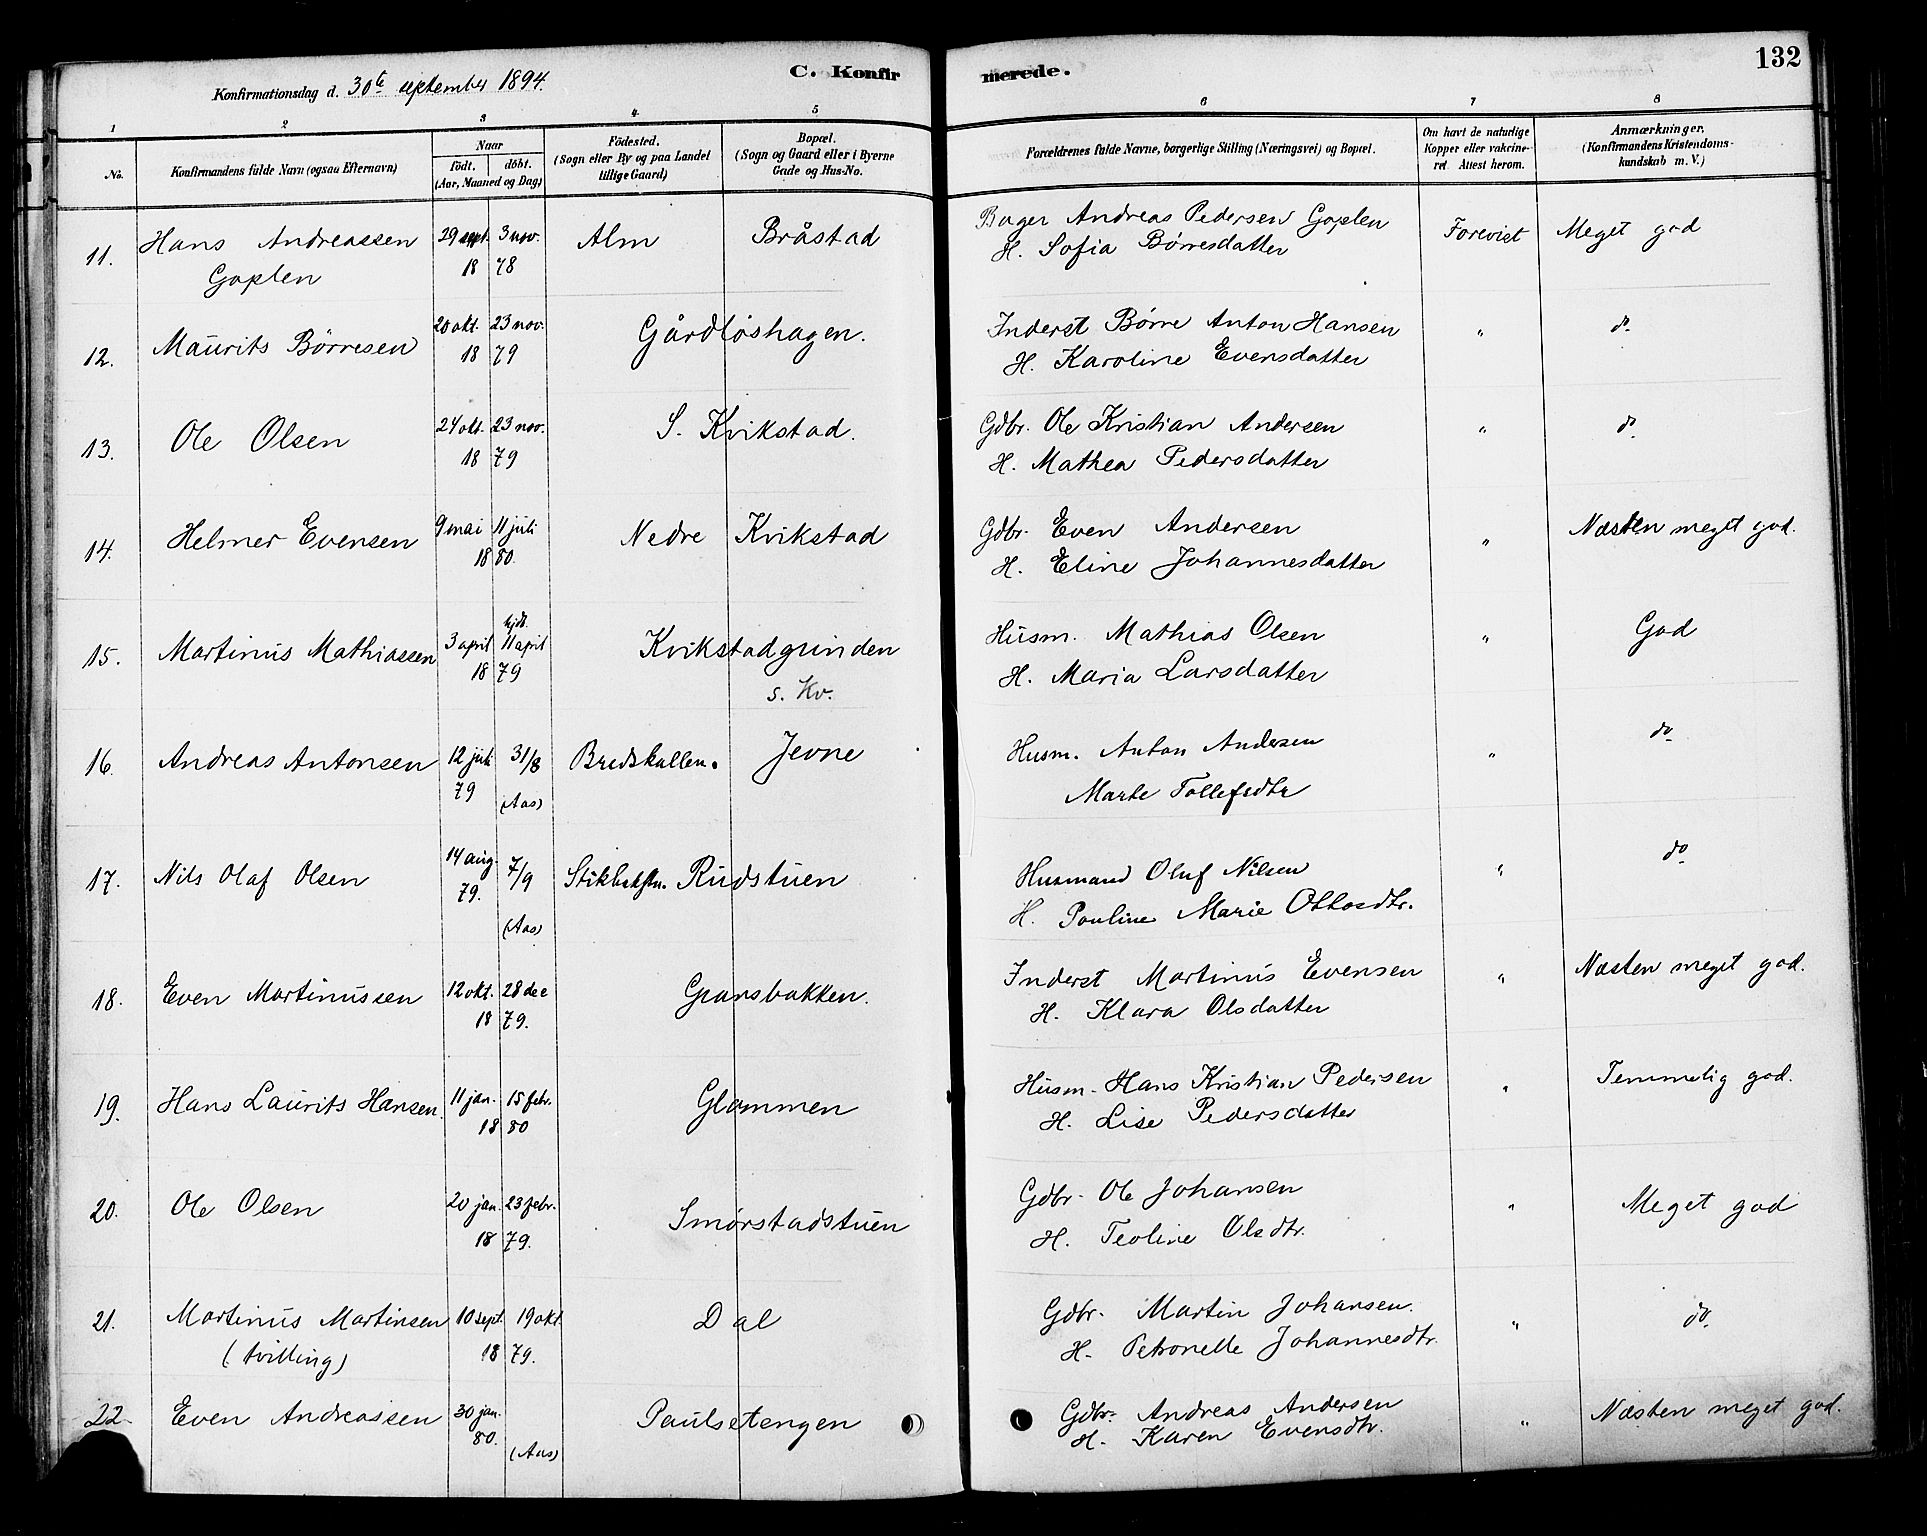 132
C. Konfirmerede.
Konfirmationsdag d. 30te september 1894.
1 2 3 4 5 6 7 8
No.
Konfirmandens fulde Navn (ogsaa Efternavn)
Naar
födt. döbt.
(Aar, Maaned og Dag)
Födested.
(Sogn eller By og paa Landet
tillige Gaard)
Bopæl.
(Sogn og Gaard eller i Byerne
Gade og Hus-No.
Forældrenes fulde Navne, borgerlige Stilling (Næringsvei) og Bopæl.
Om havt de naturlige
Kopper eller vakcine-
ret Attest herom.
Anmærkninger.
(Konfirmandens Kristendoms-
kundskab m. V.)
11. Hans Andreassen 29 sept. 3 nov. Alm Bråstad Bager Andreas Pedersen Goplen Forevist Meget god
Goplen 18 78 H. Sofia Börresdatter
12. Maurits Börresen 20 okt. 23 nov. Gårdløshagen. Inderst Børre Anton Hansen " do
18 79 H. Karoline Evensdatter
13. Ole Olsen 24 okt. 23 nov. S. Kvikstad. Gdbr. Ole Kristian Andersen " do
18 79 H. Mathea Pedersdatter
14. Helmer Evensen 9 mai 11 juli Nedre Kvikstad Gdbr. Even Andersen " Næsten meget god.
18 80. H. Eline Johannesdatter
15. Martinus Mathiassen 3 april hjdb. 11 april Kvikstadgrinden Husm. Mathias Olsen " God
18 79 s. Kv. H. Maria Larsdatter
16. Andreas Antonsen 12 juli 31/8 Bredskallen. Jevne Husm. Anton Andersen " do
79 (Aas) Marte Tollefsdtr
17. Nils Olaf Olsen 14 aug. 7/9 Rudstuen Husmand Oluf Nilsen " do
79. (Aas) H. Pouline Marie Ottosdtr.
18. Even Martinussen 12 okt. 28 dec Gransbakken. Inderst Martinus Evensen " Næsten meget god.
18 79. H. Klara Olsdatter
19. Hans Laurits Hansen 11 jan. 15 febr. Glommen Husm. Hans Kristian Pedersen " Temmelig god.
18 80 H. Lise Pedersdatter
20. Ole Olsen 20 jan. 23 febr. Smørstadstuen Gdbr. Ole Johansen " Meget god
18 79. H. Teoline Olsdtr.
21. Martinus Martinsen 10 sept. 19 okt. Dal Gdbr. Martin Johansen. " do.
(tvilling) 18 79. H. Petronelle Johannesdtr.
22 Even Andreassen 30 jan. Paulsetengen Gdbr. Andreas Andersen " Næsten meget god.
80. (Aas) H. Karen Evensdtr.